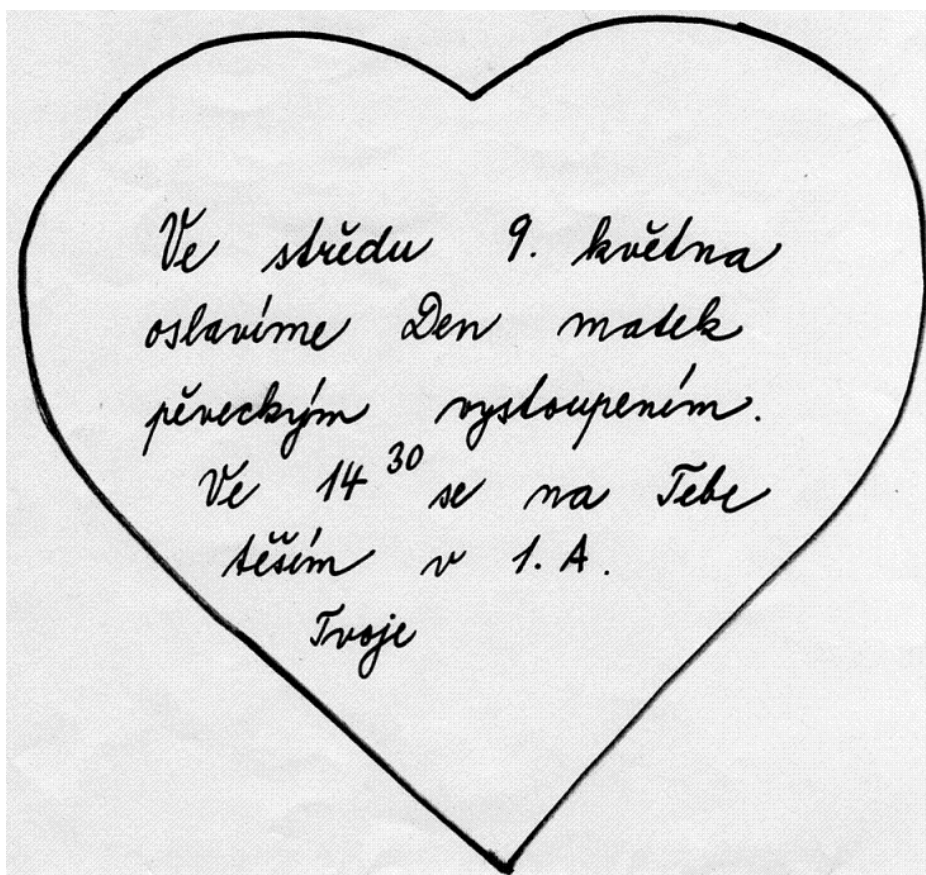 Ve středu 9. května
oslavíme Den matek
pěveckým vystoupením.
Ve 14³⁰ se na Tebe
těším v 1. A.
Tvoje